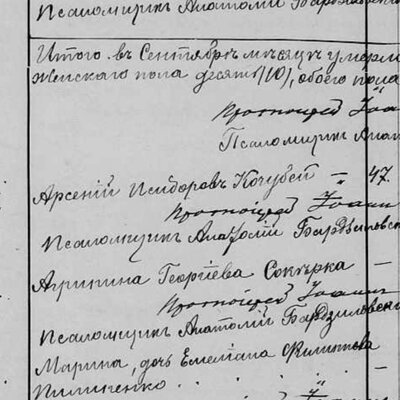 Псаломщикъ Анатолій Бардзиловскі
Итого въ Сентябрѣ мѣсяцѣ умерло
Женскаго пола десять (10), обоего пола
Протоіерей Іоа
Псаломщикъ Анат
Арсеній Исидоровъ Кочубей — 47.
Протоіерей Іоанн
Псаломщикъ Анатолій Бардзиловск
Агрипина Георгіева Сокырка —
Протоіерей Іоанн
Псаломщикъ Анатолій Бардзиловскі
Марина, дочь Емеліана Филиппова
Пилипенко . . . . —